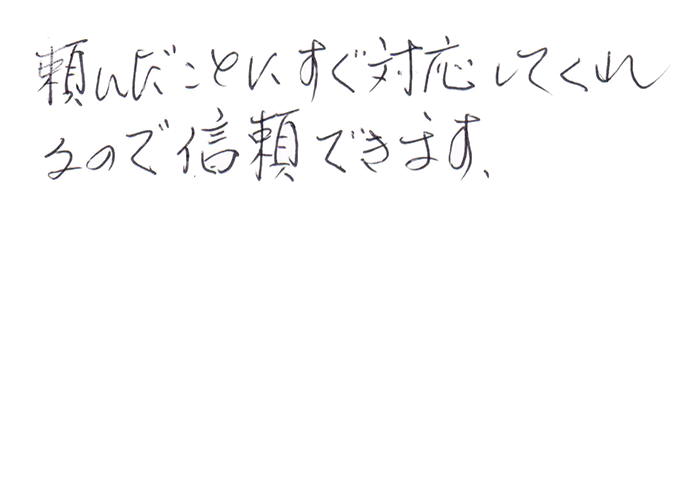 頼んだことにすぐ対応してくれ
るので信頼できます、